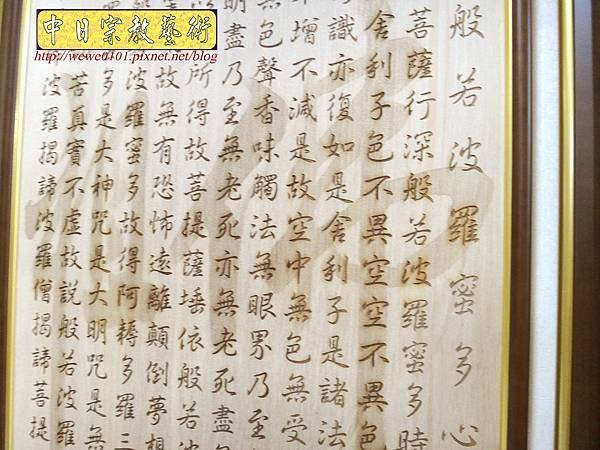 中日宗教藝術
http://wewed101.pixnet.net/blog
般若波羅蜜多心
菩薩行深般若波羅蜜多時
舍利子色不異空空不異色
識亦復如是舍利子是諸法
增不減是故空中無色無受
色聲香味觸法無眼界乃至
明盡乃至無老死亦無老死盡
所得故菩提薩埵依般若波
故無有恐怖遠離顛倒夢想
波羅蜜多故得阿耨多羅三
多是大神咒是大明咒是無
苦真實不虛故說般若波羅
波羅揭諦波羅僧揭諦菩提